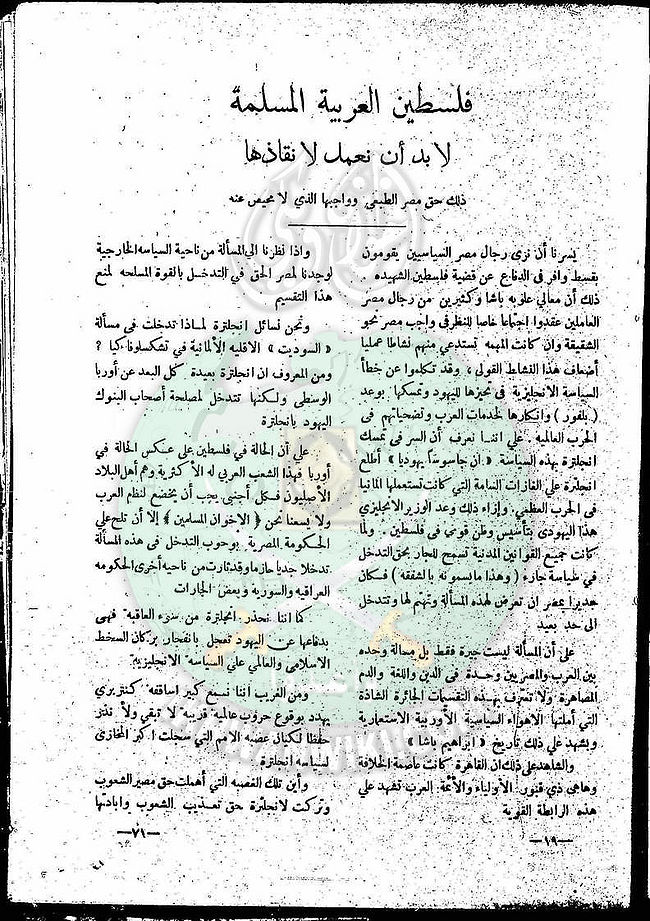 فلسطين العربية المسلمة
لا بد أن نعمل لانقاذها
ذلك حق مصر الطبيعي وواجبها الذي لا محيص عنه
يسرنا أن نرى رجال مصر السياسيين يقومون
بقسط وافر في الدفاع عن قضية فلسطين الشهيده .
ذلك أن معالي علوبه باشا وكثيرين من رجال مصر
العاملين عقدوا إجتماعا خاصا للنظر في واجب مصر نحو
الشقيقة وان كانت المهمه تستدعي منهم نشاطا عمليا
أضعاف هذا النشاط القولي ، وقد تكلموا عن خطأ
السياسة الانجليزية في تحيزها لليهود وتمسكها بوعد
( بلفور ) وانكارها لخدمات العرب وتضحياتهم في
الحرب العالمية . علي اننا نعرف أن السر في تمسك
انجلترة بهذه السياسة « ان جاسوسا يهوديا » أطلع
انجلترة علي الغازات السامة التي كانت تستعملها المانيا
في الحرب العظمي . وإزاء ذلك وعد الوزير الانجليزي
هذا اليهودي بتأسيس وطن قومي في فلسطين . ولما
كانت جميع القوانين المدنية تسمح للجار بحق التدخل
في سياسة جاره ( وهذا مايسمونه بالشفقه ) فسكان
جديرا بمصر ان تعرض لهذه المسألة وتهتم لها وتتدخل
الى حد بعيد
على أن المسألة ليست جيرة فقط بل مسالة وحده
بين العرب والمصريين وحدة في الدين واللغة والدم
المصاهرة ولا تعترف بهذه التقسيمات الجائرة الشاذة
التي أملتها الاهواء السياسية الأوربية الاستعمارية
ويشهد علي ذلك تاريخ « ابراهيم باشا »
والشاهد علي ذلك ان القاهرة كانت عاصمة الخلافة
وهاهي ذي قبور الأولياء والأئمة العرب تشهد علي
هذه الرابطة القوية
— ١٩ —
واذا نظرنا الى المسألة من ناحية السياسه الخارجية
لوجدنا لمصر الحق في التدخل بالقوة المسلحه لمنع
هذا التقسيم
ونحن نسائل انجلترة لماذا تدخلت في مسألة
« السوديت » الاقليه الألمانية في تشكسلوفاكيا ؟
ومن المعروف ان انجلترة بعيدة كل البعد عن أوربا
الوسطى ولكنها تتدخل لمصلحة أصحاب البنوك
اليهود بانجلترة
علي أن الحالة في فلسطين على عكس الحالة في
أوربا فهذا الشعب العربي له الأكثرية وهم أهل البلاد
الأصليون فكل أجنبي يجب أن يخضع لنظم العرب
ولا يسعنا نحن ( الاخوان المسلمين ) إلا أن تلح علي
الحكومة المصرية بوجوب التدخل في هذه المسألة
تدخلا جديا حازما وقد ثارت من ناحيه أخرى الحكومه
العراقيه والسورية وبعض الجارات
كما اننا نحذر انجلترة من سوء العاقبه فهي
بدفاعها عن اليهود تعجل بانفجار بركان السخط
الاسلامي والعالمي علي السياسه الانجليزيه
ومن الغريب أننا نسمع كبير اساقفة كنتربري
يهدد بوقوع حروب عالميه قريبه لا تبقي ولا تذر
حفظا لكيان عصبه الامم التي سجلت اكبر المخازى
لسياسه انجلترة
وأين تلك العصبه التي أهملت حق مصير الشعوب
وتركت لانجلترة حق تعذيب الشعوب وابادتها
— ٧١ —